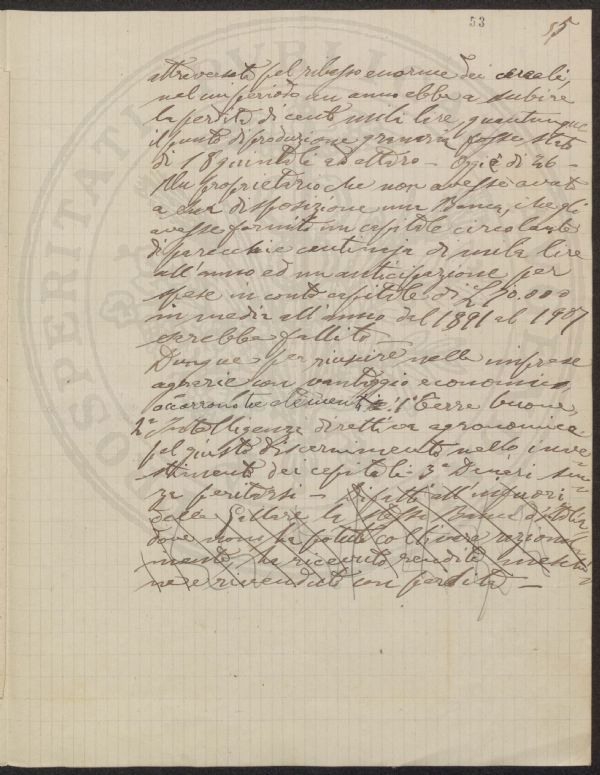 53
55
attraversata pel ribasso enorme dei cereali,
nel un periodo un anno ebbe a subire
la perdita di cento mila lire, quantunque
il punto di produzione granaria fosse stato
di 18 quintali ad ettaro — Oggi è di 26 —
Un proprietario che non avesse avuto
a sua disposizione una Banca, che gli
avesse fornito un capitale circolante
di parecchie centinaja di mila lire
all'anno ed un anticipazione per
spese in conto capitale di £ 70.000
in media all'anno dal 1891 al 1907
sarebbe fallito —
Dunque per riuscire nelle imprese
agrarie con vantaggio economico
occorrono tre elementi: 1° Terre buone,
2° Intelligenza direttiva agronomica
pel giusto discernimento nello inve-
stimento dei capitali 3° Denari sen-
za peritarsi — Difatti all'infuori
della la stessa Banca d'Italia
dove non ha potuto coltivare raziona-
mente, ha ricavato rendite meschi-
ne e rivenduto con perdita —